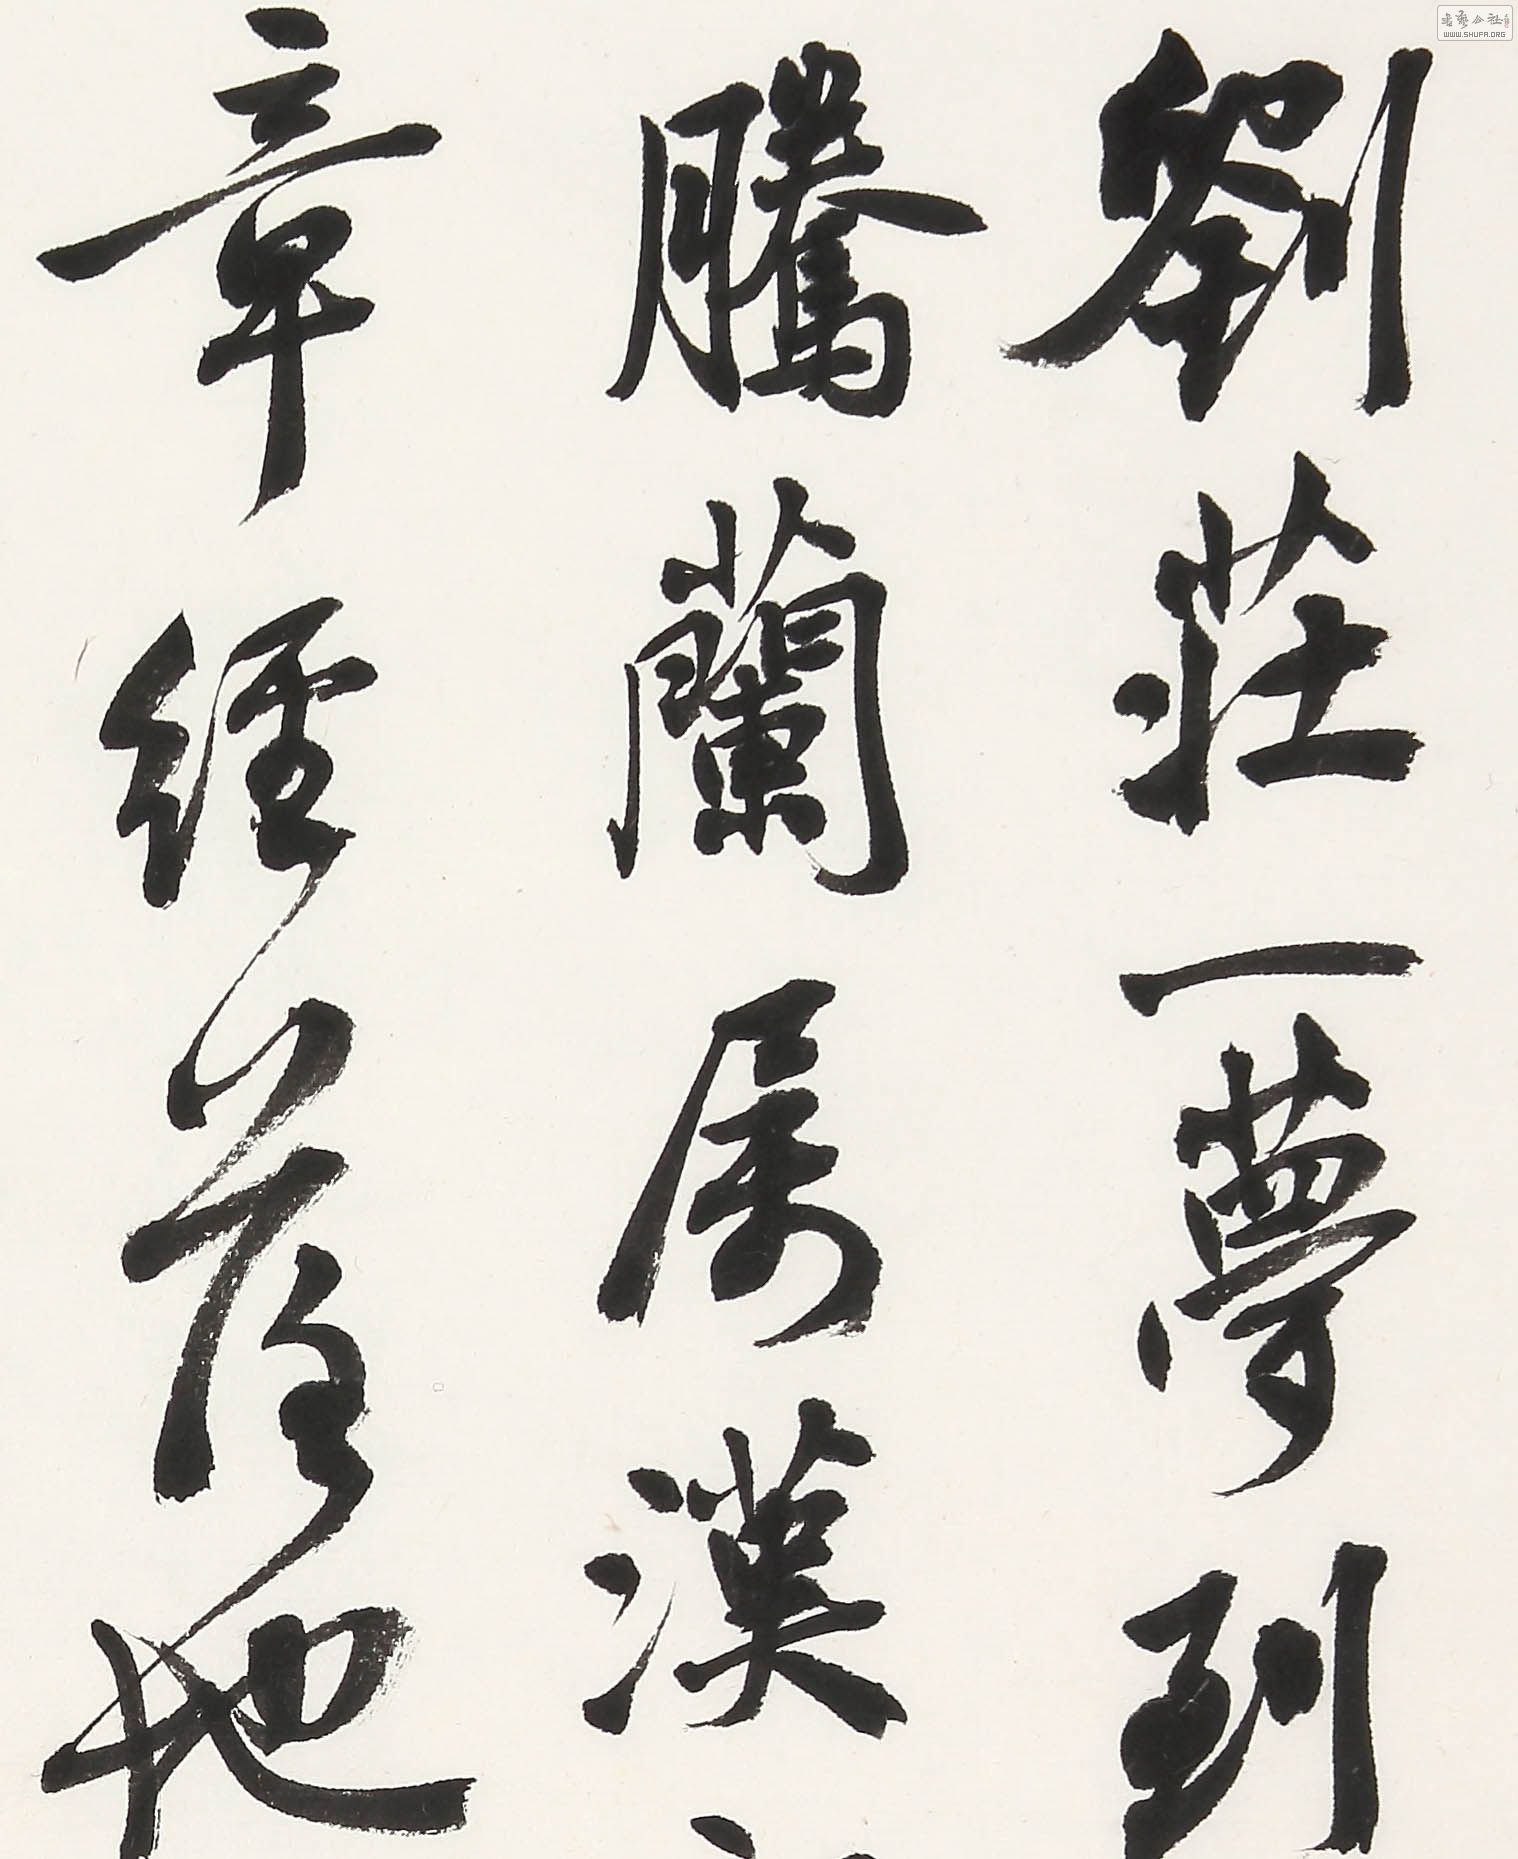 劉莊一夢到
騰蘭屬漢
章經落地
書藝公社
WWW.SHUFA.ORG